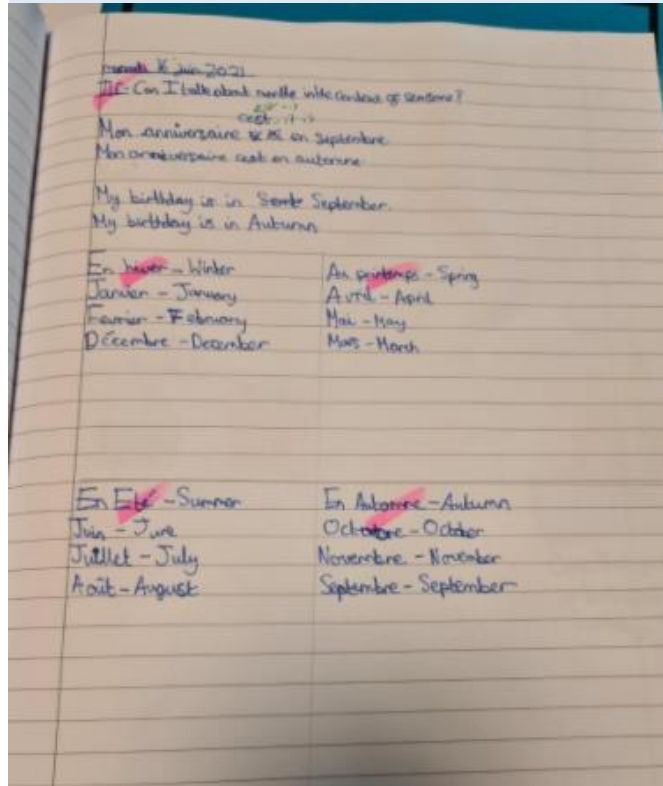 16 juin 2021
Can I talk about months in the context of seasons?
c'est - it is
Mon anniversaire en Septembre
Mon anniversaire cest en automne
My birthday is in September.
My birthday is in Autumn
En hiver - Winter
Janvier - January
Fevrier - February
Décembre - December
Au printemps - Spring
Avril - April
Mai - May
Mars - March
En Eté - Summer
Juin - June
Juillet - July
Août - August
En Automne - Autumn
Octobre - October
Novembre - November
Septembre - September